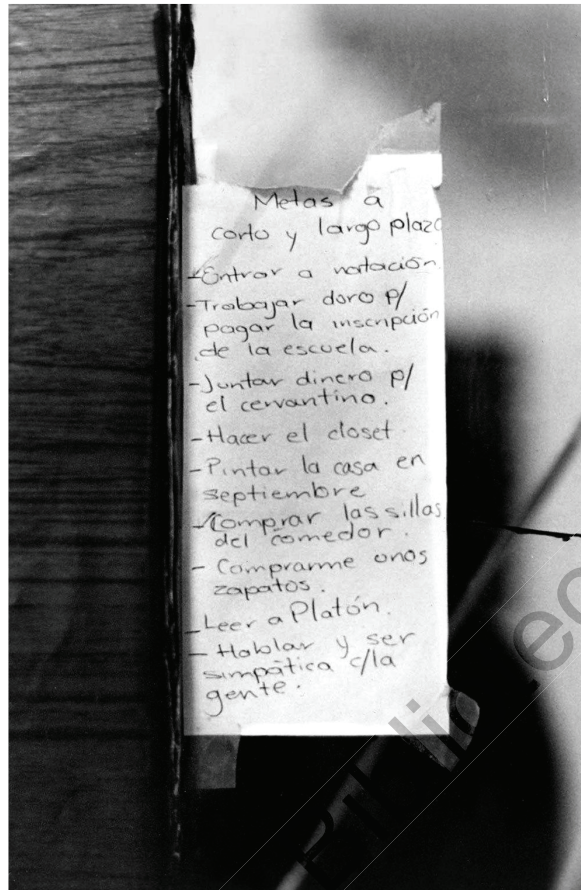 Metas a
corto y largo plazo
-Entrar a natación
-Trabajar duro p/
pagar la inscripción
de la escuela.
-Juntar dinero p/
el cervantino.
-Hacer el closet.
-Pintar la casa en
septiembre
✓Comprar las sillas
del comedor.
- Comprarme unos
zapatos.
-Leer a Platón.
- Hablar y ser
simpática c/la
gente.